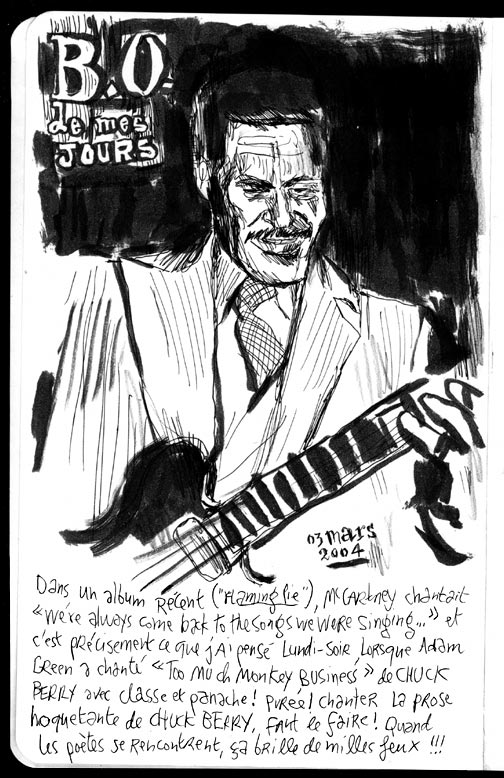 B.O
de mes
JOURS
03 mars
2004
Dans un album Récent ("Flaming Pie"), McCartney chantait
«We're always come back to the songs we were singing...» et
c'est précisement ce que j'Ai pensé Lundi-Soir Lorsque Adam
Green a chanté «Too Much Monkey Business» de CHUCK
BERRY avec classe et panache! Purée! chanter La prose
hoquetante de CHUCK BERRY, faut le faire! Quand
Les poètes se rencontrent, ça brille de milles feux !!!